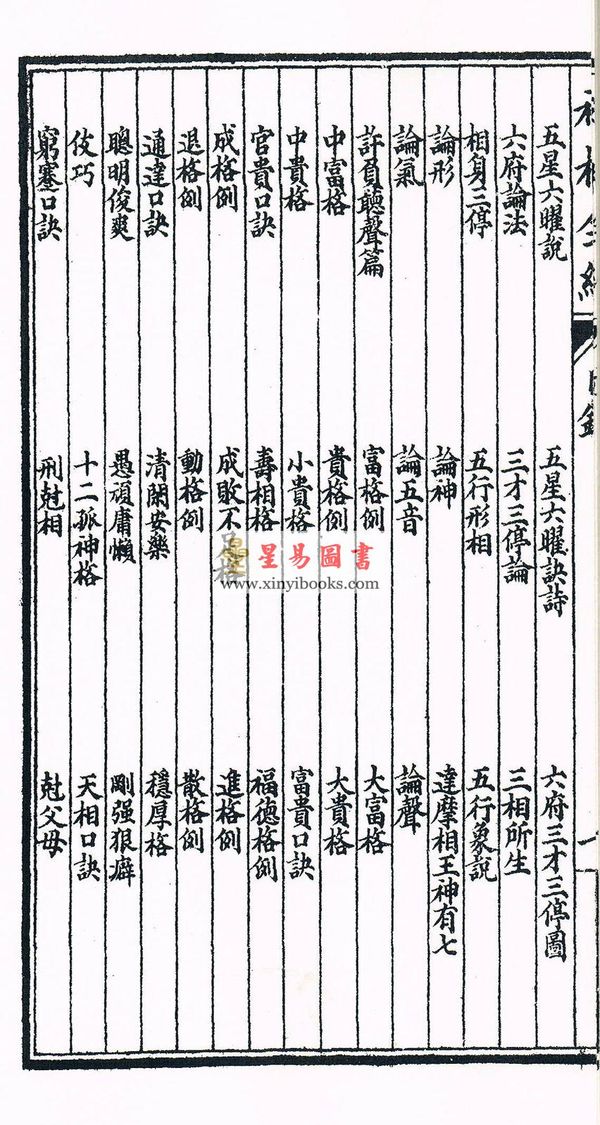 五星六曜說 五星六曜訣詩 六府三才三停圖
六府論法 三才三停論 三相所生
相身三停 五行形相 五行象說
論形 論神 達摩相王神有七
論氣 論五音 論聲
許負聽聲篇 富格例 大富格
中富格 貴格例 大貴格
中貴格 小貴格 富貴口訣
官貴口訣 壽相格 福德格例
成格例 成敗不格 進格例
退格例 動格例 散格例
通達口訣 清閑安樂 穩厚格
聰明俊爽 愚頑庸懶 剛强狠癖
伎巧 十二孤神格 天相口訣
窮蹇口訣 刑尅相 尅父母
星易圖書
www.xinyibooks.com